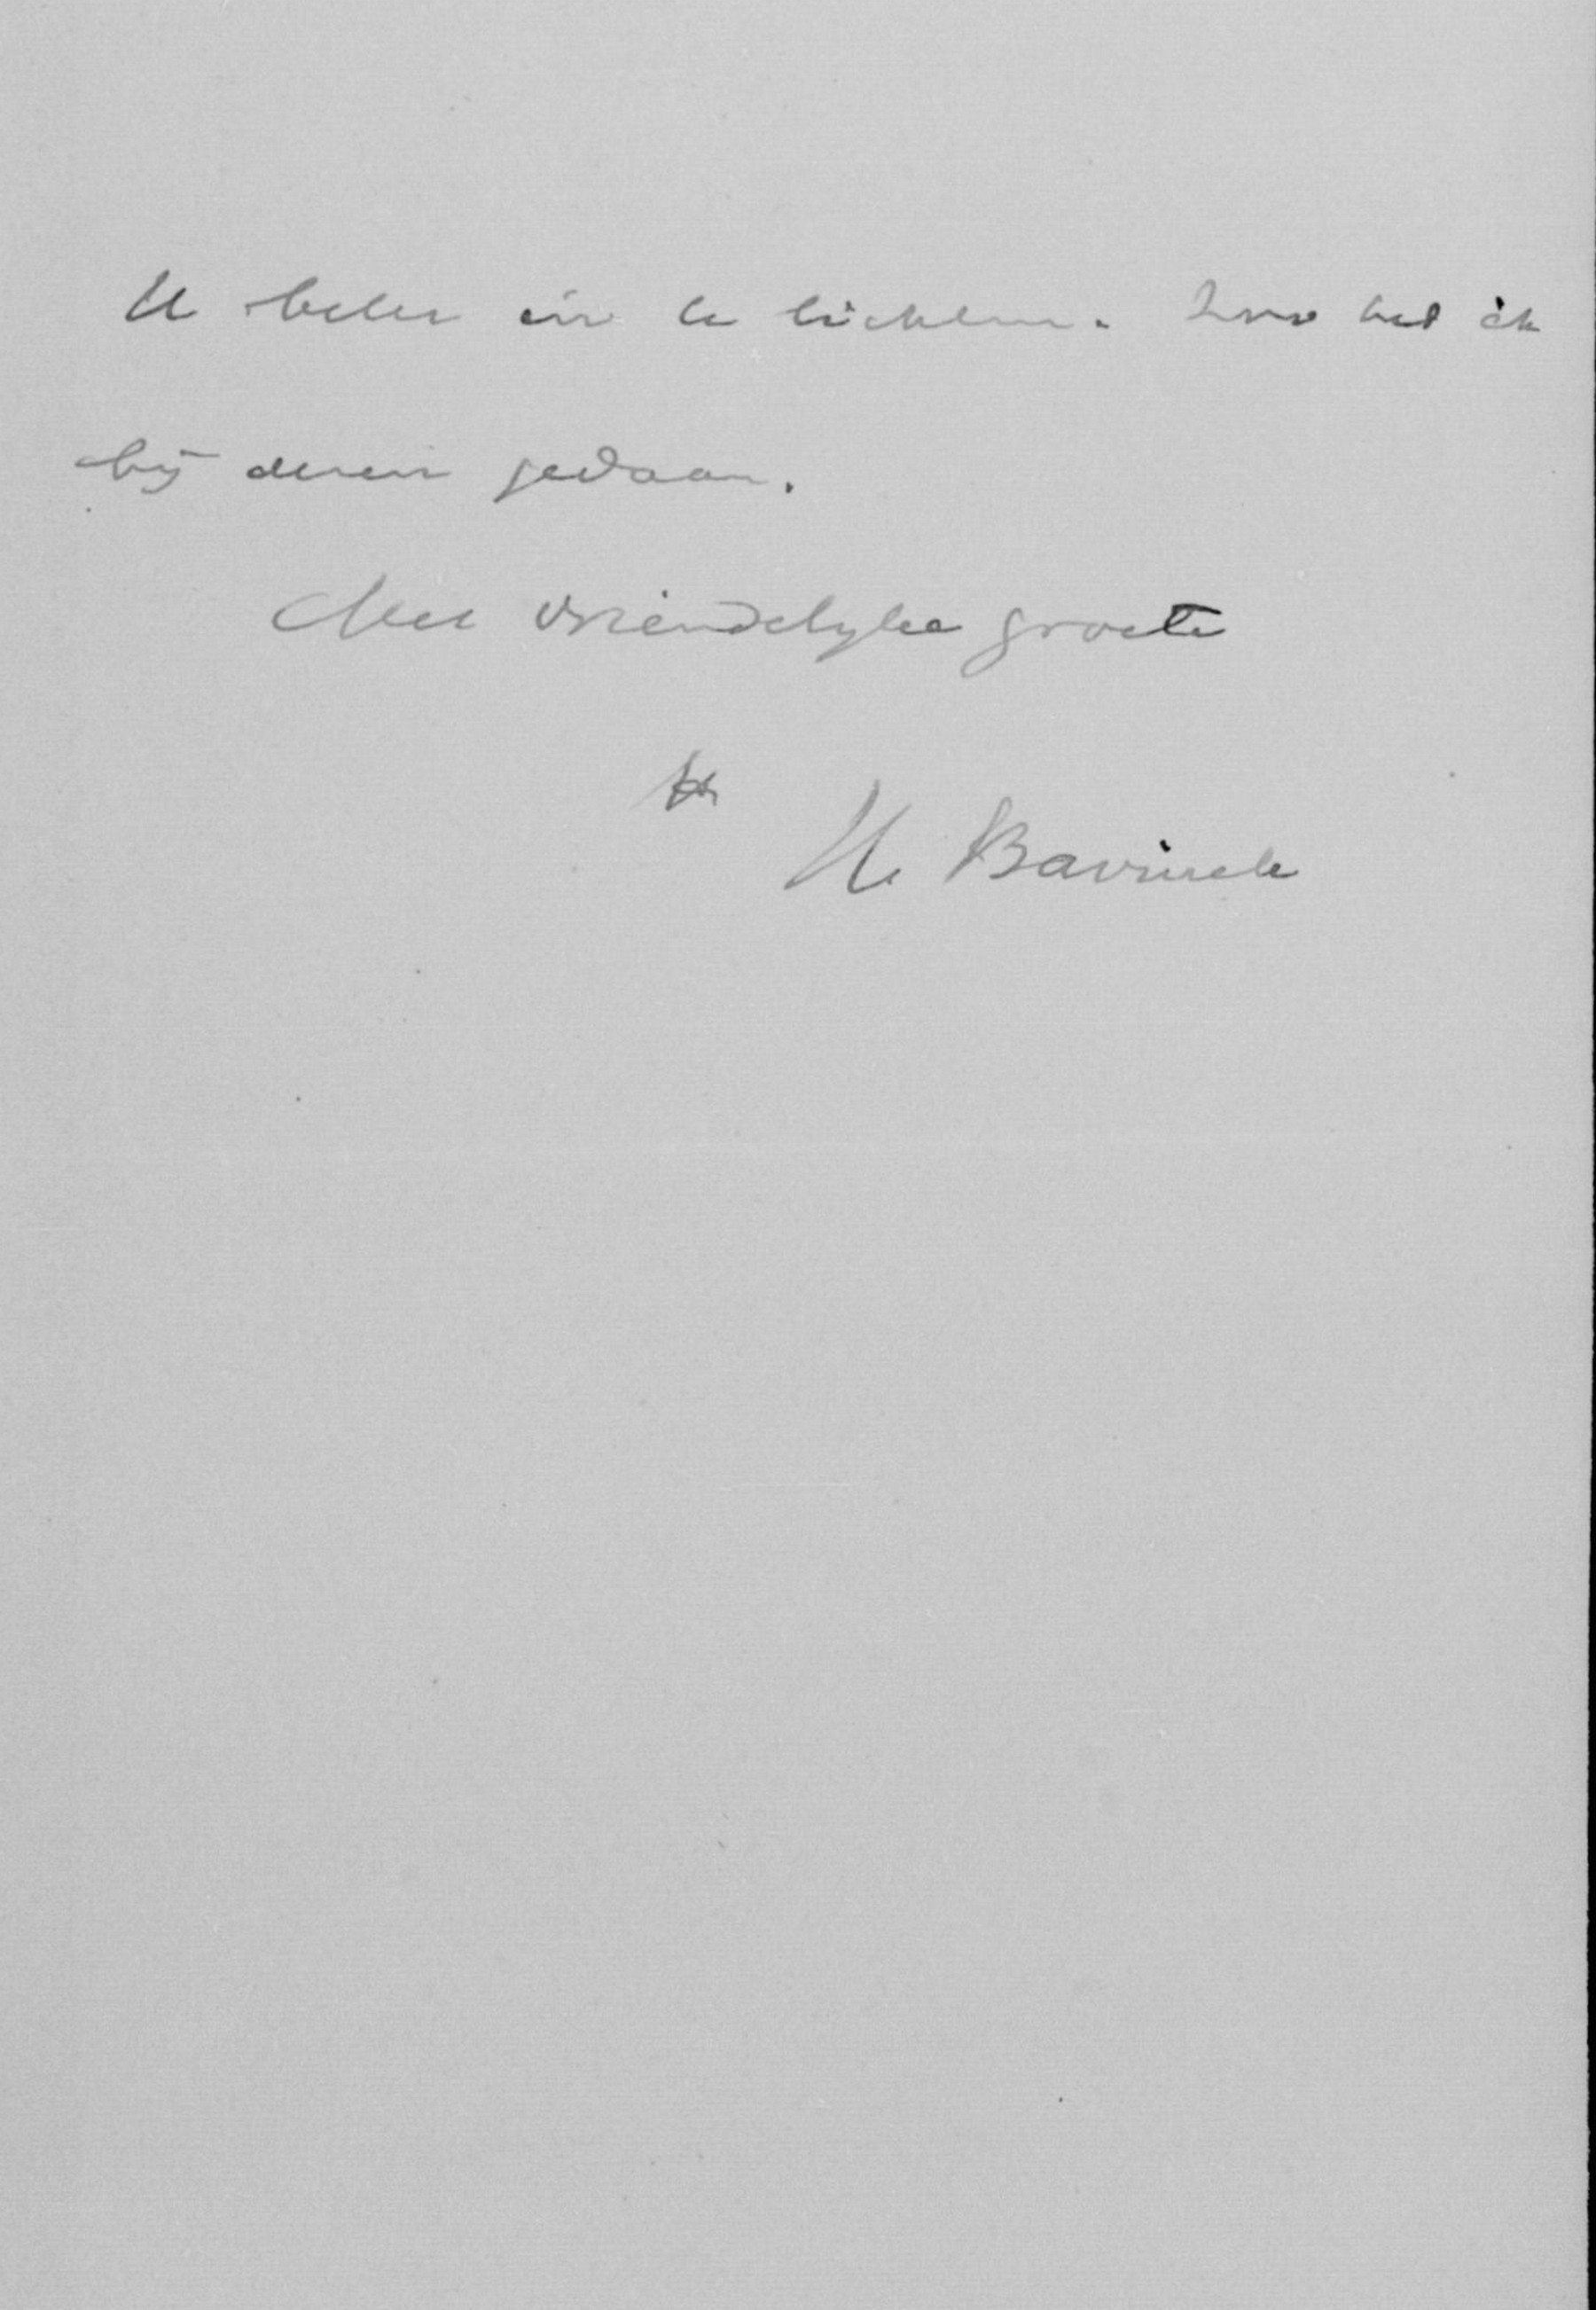 U beter in te lichten. Dus heb ik
bij dezen gedaan.
Met vriendelyke groete
H. Bavinck